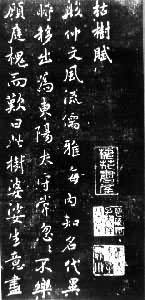 枯樹賦
殷仲文風流儒雅海內知名代異
時移出為東陽太守常忽忽不樂
顧庭槐而歎曰此樹婆娑生意盡